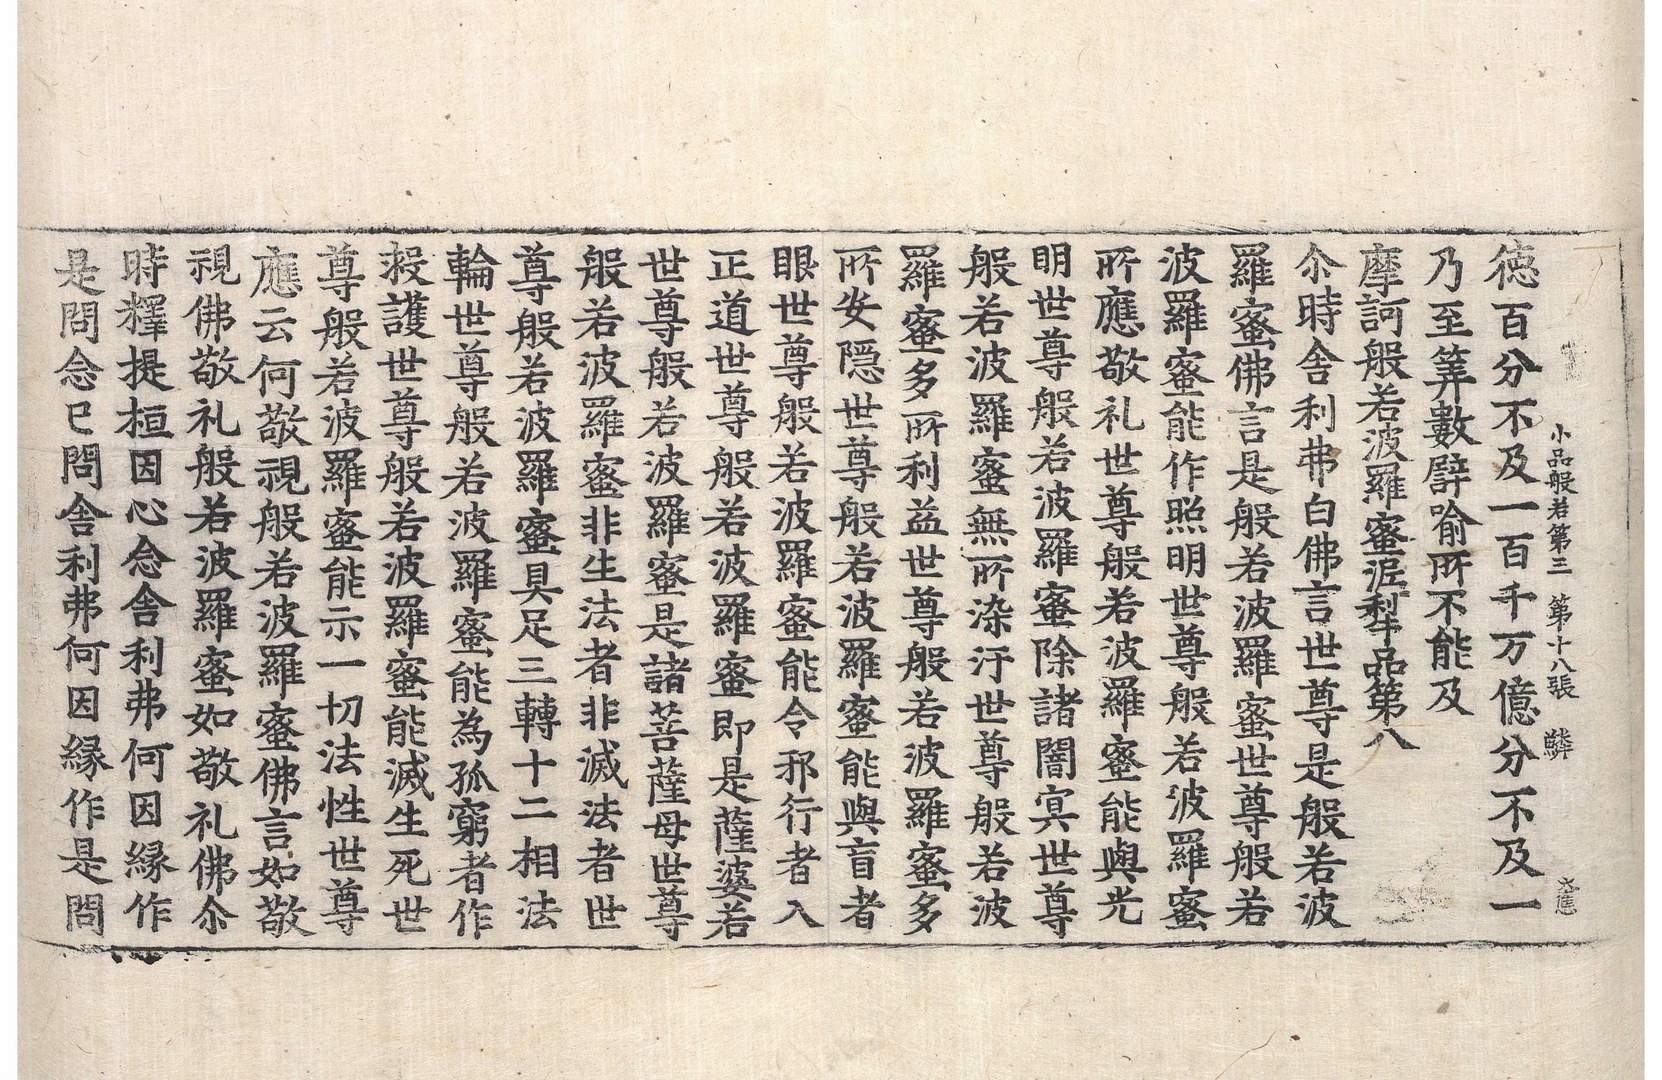 小品般若第三 第十八張 鱗 大應
德百分不及一百千万億分不及一
乃至筭數譬喻所不能及
摩訶般若波羅蜜泥犁品第八
尒時舍利弗白佛言世尊是般若波
羅蜜佛言是般若波羅蜜世尊般若
波羅蜜能作照明世尊般若波羅蜜
所應敬礼世尊般若波羅蜜能與光
明世尊般若波羅蜜除諸闇冥世尊
般若波羅蜜無所染汙世尊般若波
羅蜜多所利益世尊般若波羅蜜多
所安隱世尊般若波羅蜜能與盲者
眼世尊般若波羅蜜能令邪行者入
正道世尊般若波羅蜜即是薩婆若
世尊般若波羅蜜是諸菩薩母世尊
般若波羅蜜非生法者非滅法者世
尊般若波羅蜜具足三轉十二相法
輪世尊般若波羅蜜能為孤窮者作
救護世尊般若波羅蜜能滅生死世
尊般若波羅蜜能示一切法性世尊
應云何敬視般若波羅蜜佛言如敬
視佛敬礼般若波羅蜜如敬礼佛尒
時釋提桓因心念舍利弗何因緣作
是問念已問舍利弗何因緣作是問